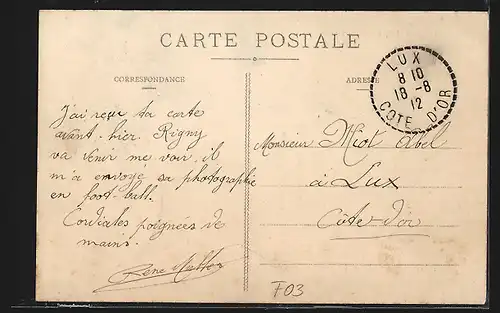 CARTE POSTALE
CORRESPONDANCE
ADRESSE
LUX
8 10
18 -8
12
COTE D'OR
J'ai reçu ta carte
avant-hier. Rigny
va venir me voir, il
m'a envoyé sa photographie
en foot-ball.
Cordiales poignées de
mains.
René
Monsieur Miot Abel
à Lux
Côte d'or
F03